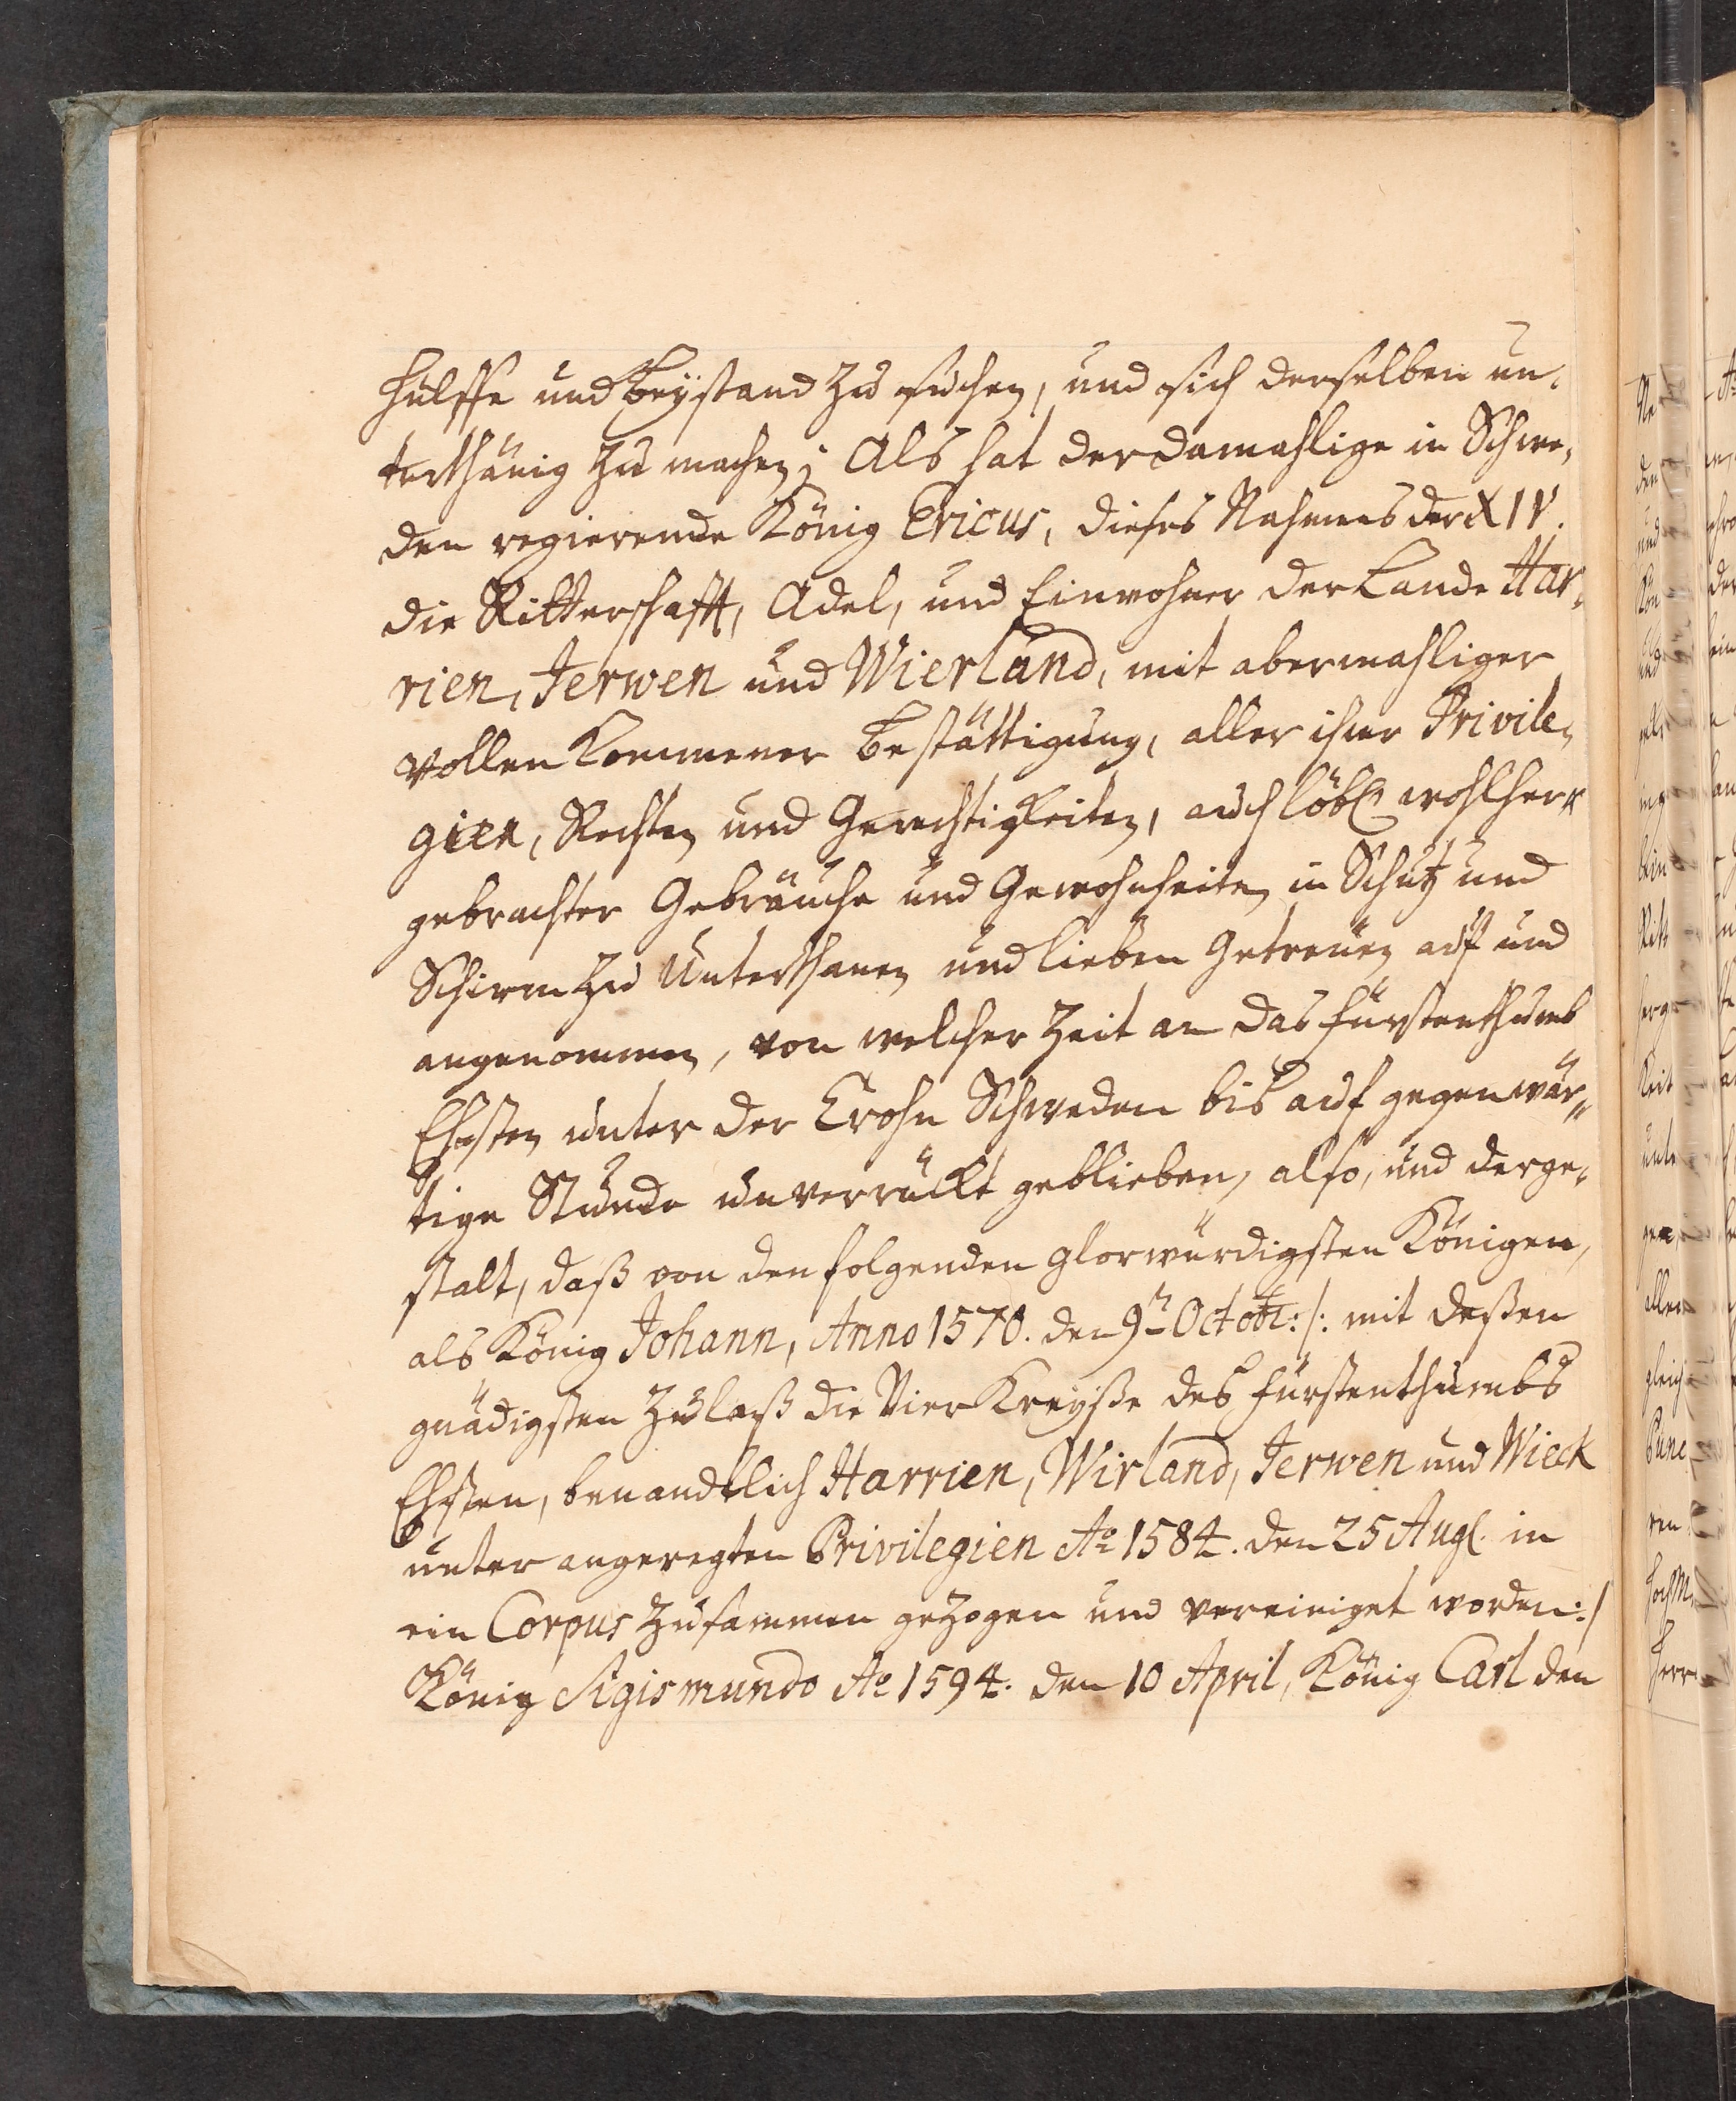 Hülffe und Beÿstand zu suchen, und sich derselben un-
terthänig zu machen; Als hat der damahlige in Schwe-
den regierende König Ericus, dieses Nahmens der XIV.
die Ritterschafft, Adel, und Einwohner der Lande Har-
rien, Jerwen und Wierland, mit abermahliger
vollen Kommener Bestättigung, aller ihrer Privile-
gien, Rechten und Gerechtigkeiten, auch löbl. wohlher-
gebrachter Gebräuche und Gewohnheiten in Schutz und
Schirm zu Unterthanen und lieben Getreuen auf und
angenommen, von welcher Zeit an das Fürstenthumb
Ehsten unter der Crohn Schweden bis auf gegenwär-
tige Stunde unverrückt geblieben, also, und derge-
stalt, daß von den folgenden glorwürdigsten Königen,
als König Johann, Anno 1570. den 9n Octobr: /: mit deßen
gnädigsten Zulaß die Vier Kreyße des Fürstenthumbs
Ehsten, benandtlich Harrien, Wirland, Jerwen und Wieck
unter angeregten Privilegien Ao 1584. den 25 Augl. in
ein Corpus zusammen gezogen und vereiniget worden :/
König Sigismundo Ao 1594. den 10 April, König Carl den